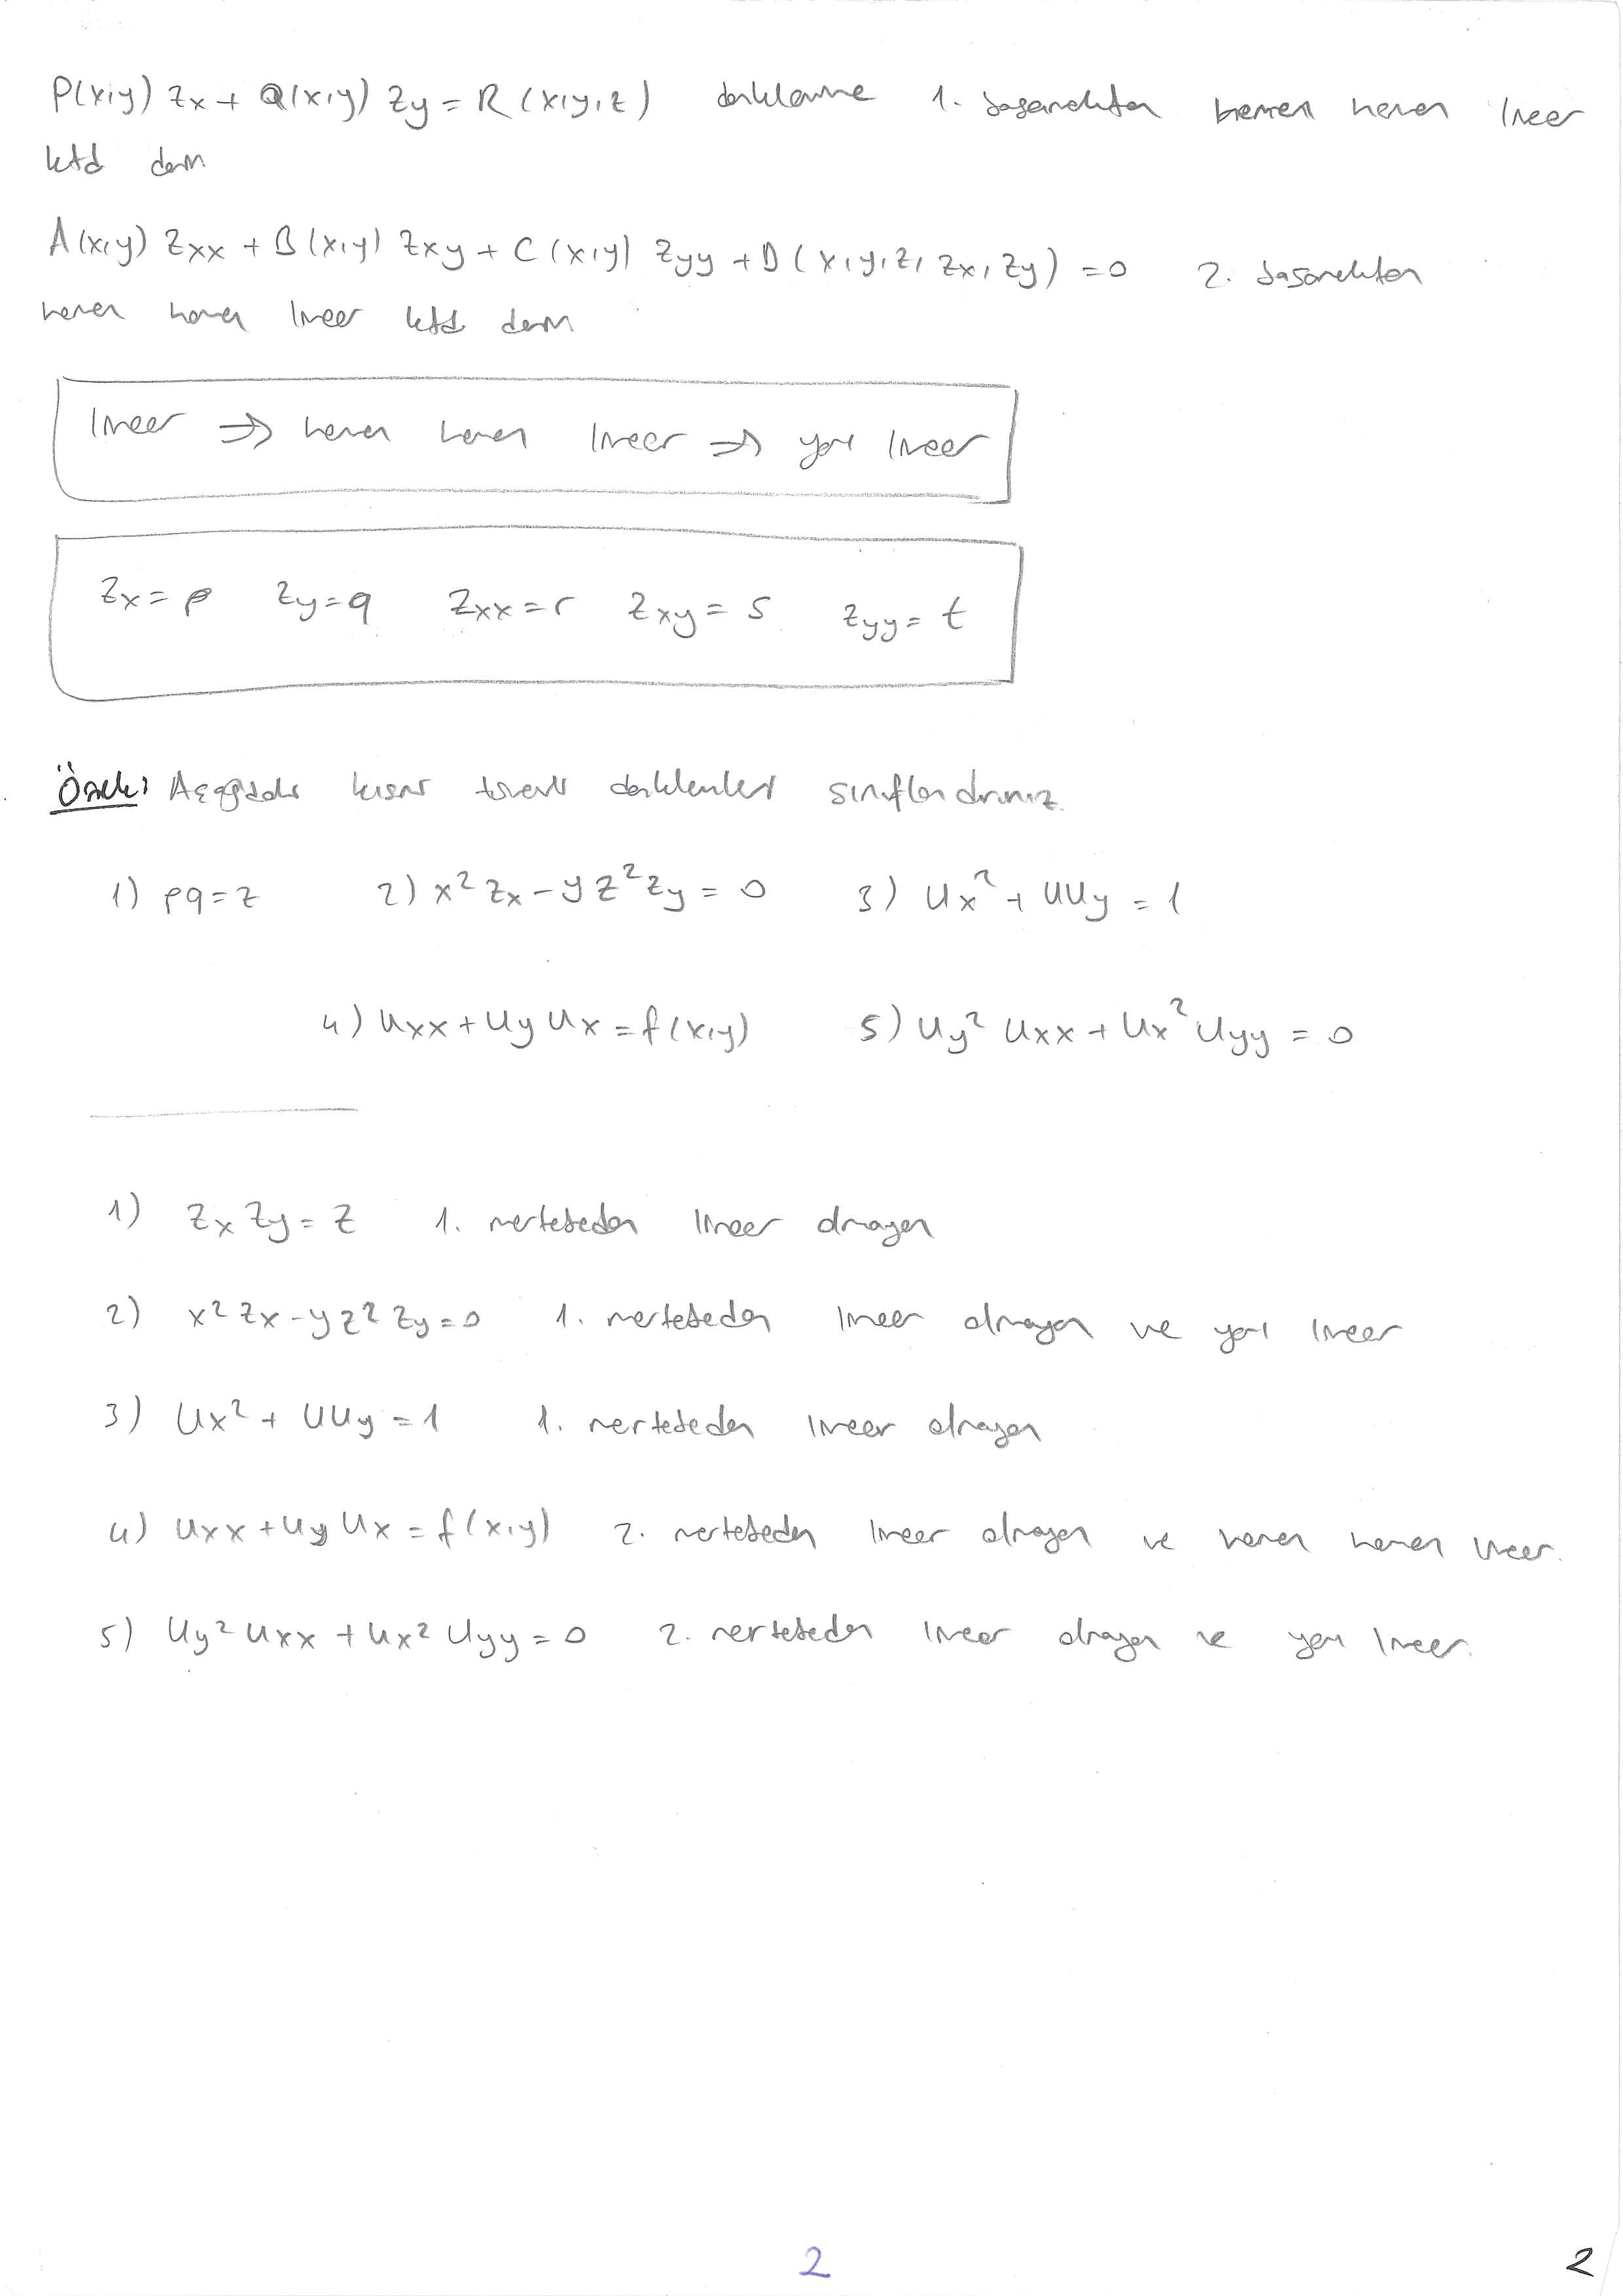 P(x,y) Zx + Q(x,y) Zy = R(x,y,z) denklemine 1. basamaktan hemen hemen lineer
ktd denir
A(x,y) Zxx + B(x,y) Zxy + C(x,y) Zyy + D(x,y,z,Zx,Zy) = 0 2. basamaktan
hemen hemen lineer ktd denir
lineer ⇒ hemen hemen lineer ⇒ yarı lineer
Zx = p Zy = q Zxx = r Zxy = s Zyy = t
Örnek: Aşağıdaki kısmi türevli denklemleri sınıflandırınız.
1) pq = z 2) x² Zx - y z² Zy = 0 3) Ux² + UUy = 1
4) Uxx + Uy Ux = f(x,y) 5) Uy² Uxx + Ux² Uyy = 0
1) Zx Zy = Z 1. mertebeden lineer olmayan
2) x² Zx - y z² Zy = 0 1. mertebeden lineer olmayan ve yarı lineer
3) Ux² + UUy = 1 1. mertebeden lineer olmayan
4) Uxx + Uy Ux = f(x,y) 2. mertebeden lineer olmayan ve hemen hemen lineer.
5) Uy² Uxx + Ux² Uyy = 0 2. mertebeden lineer olmayan ve yarı lineer.
2 2